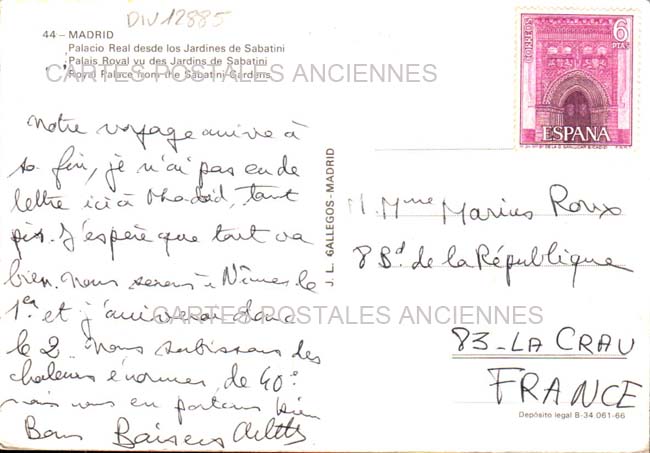 DIV12885
44 – MADRID
Palacio Real desde los Jardines de Sabatini
Palais Royal vu des Jardins de Sabatini
Royal Palace from the Sabatini Gardens
CARTES POSTALES ANCIENNES
CORREOS
6
PTAS
ESPAÑA
Notre voyage arrive à
sa fin, je n'ai pas eu de
lettre ici à Madrid, tant
pis. J'espère que tout va
bien. Nous serons à Nîmes le
1er et j'arriverai donc
le 2. Nous subissons des
chaleurs énormes, de 40°
mais nous en portons bien
Bons Baisers
J. L. GALLEGOS - MADRID
M. Mme Marius Roux
8 Bd de la République
CARTES POSTALES ANCIENNES
83 - LA CRAU
FRANCE
Depósito legal B-34 061-66